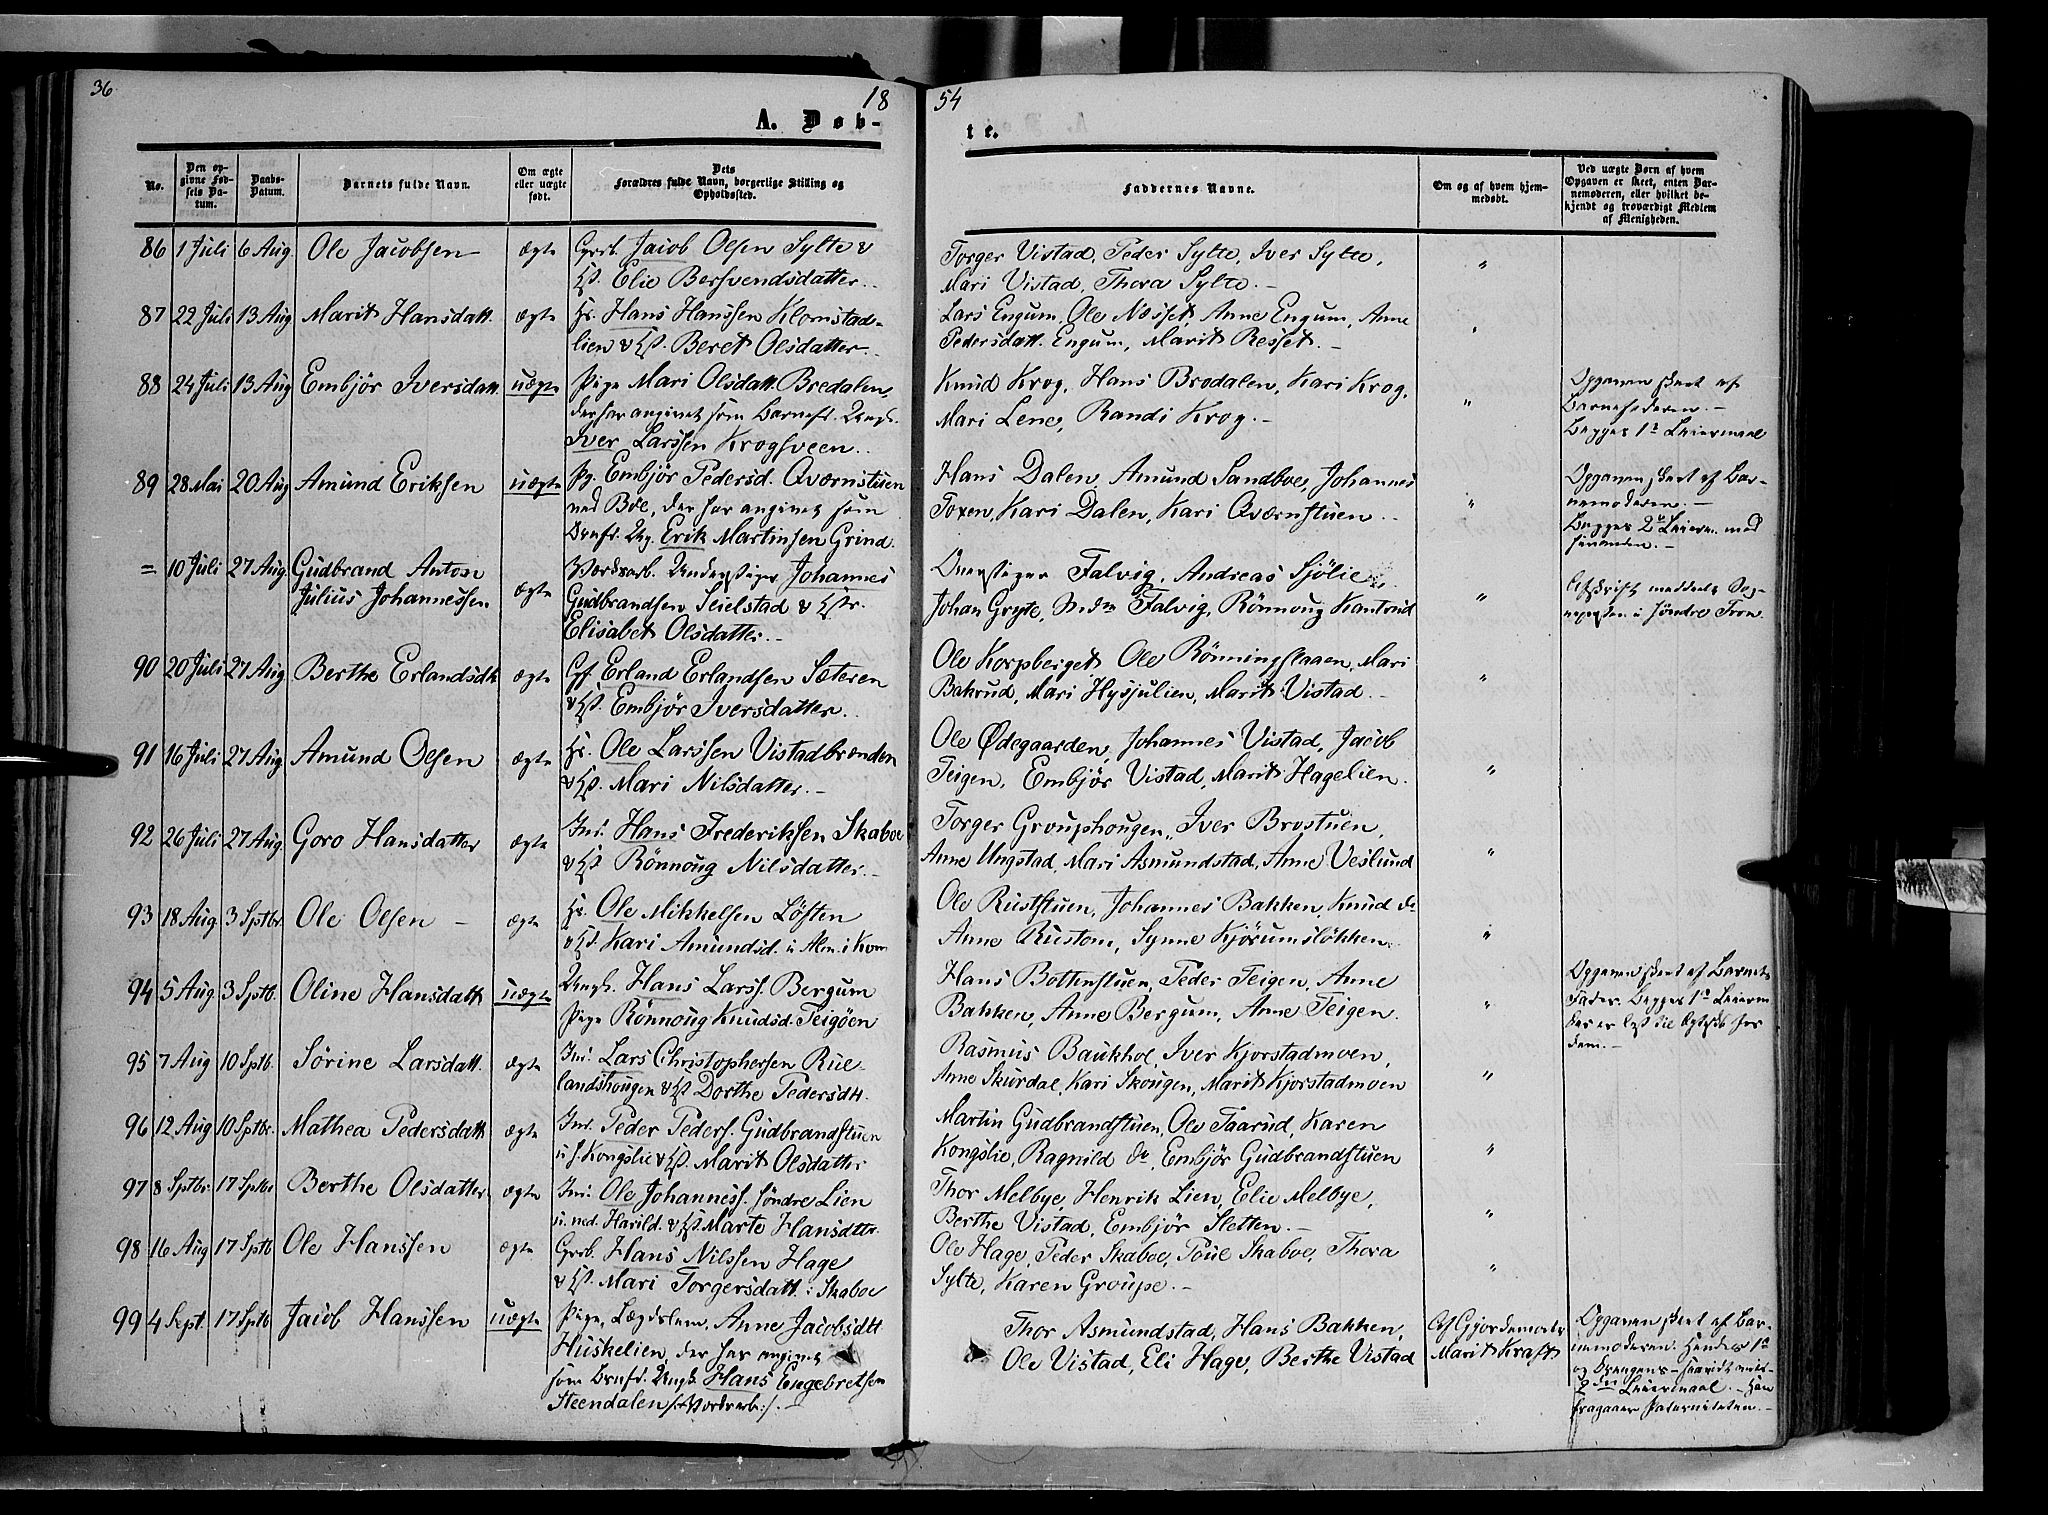 36
18
54
A. Døb-
te.
No.
Den op-
givne Fød-
sels Da-
tum.
Daabs-
Datum.
Barnets fulde Navn.
Om ægte
eller uægte
født.
Dets
Forældres fulde Navn, borgerlige Stilling og
Opholdssted.
Faddernes Navne.
Om og af hvem hjem-
medøbt.
Ved uægte Børn af hvem
Opgaven er skeet, enten Bar-
nemoderen, eller hvilket be-
kjendt og troværdigt Medlem
af Menigheden.
86 1 Juli 6 Aug. Ole Jacobsen ægte Grb. Jacob Olsen Sylte &
Elie Bersvendsdatter.
Torger Vistad, Peder Sylte, Iver Sylte,
Mari Vistad, Thora Sylte. "
87 22 Juli 13 Aug Marit Hansdatt. ægte Hans Hanssen Klomstad-
lien & Beret Olsdatter.
Lars Engum, Ole Næsset, Anne Engum, Anne
Pedersdatt. Engum, Marit Resset. "
88 24 Juli 13 Aug Embjör Iversdatt. uægte Pige Mari Olsdatt. Bredalen,
der har angivet som Barnef. Ungk.
Iver Larssen Krogsveen.
Knud Krog, Hans Brodalen, Kari Krog,
Mari Lene, Randi Krog. "
Opgaven skeet af
Barnefaderen.
Begges 1ste Leiermaal
89 28 Mai 20 Aug Amund Eriksen uægte Pg. Embjör Pedersd. Qværnstuen
ned Böe, der har angivet som
Brnfr. Ung. Erik Martinsen Grind.
Hans Dalen, Amund Sandboe, Johannes
Toxen, Kari Dalen, Kari Qværnstuen. "
Opgaven skeet af Bar-
nemoderen.
Begges 2det Leierm. med
hinanden.
= 10 Juli 27 Aug. Gudbrand Anton
Julius Johannessen ægte
Johannes
Gudbrandsen Seielstad &
Elisabet Olsdatter.
Falvig, Andreas Sjölie,
Johan Gryte, Falvig, Rönnoug Kantrud "
Afskrift meddeelt Sog-
nepræsten i söndre Fron.
90 20 Juli 27 Aug. Berthe Erlandsdtt. ægte Gf. Erland Erlandsen Sæteren
& Embjör Iversdatter.
Ole Korpberget, Ole Rönningslaaen, Mari
Bakrud, Mari Hysjulien, Marit Vistad. "
91 16 Juli 27 Aug Amund Olsen ægte Ole Larssen Vistadbrænden
& Mari Nilsdatter.
Ole Ødegaarden, Johannes Vistad, Jacob
Teigen, Embjör Vistad, Marit Hagelien. "
92 26 Juli 27 Aug. Goro Hansdatter ægte Ind. Hans Frederiksen Skaboe
& Rönnoug Nilsdatter.
Torger Grouphougen, Iver Brostuen,
Anne Ungstad, Mari Asmundstad, Anne Veslund "
93 18 Aug. 3 Sptbr. Ole Olsen ægte Ole Mikkelsen Löften
& Kari Amundsd. u. Alm. i Kvm
Ole Ruststuen, Johannes Bakken, Knud do
Anne Rustom, Synne Kjörumslökken. "
94 5 Aug 3 Sptb. Oline Hansdatt. uægte Ungk. Hans Larss. Bergum
Pige Rönnoug Knudsd. Teigöen
Hans Bottenstuen, Peder Teigen, Anne
Bakken, Anne Bergum, Anne Teigen. "
Opgaven skeet af Barnets
Fader. Begges 1ste Leierm
Der er lyst til Ægtesk. for
dem.
95 7 Aug 10 Sptb. Sörine Larsdatt. ægte Ind. Lars Christophersen Rue-
landshougen & Dorthe Pedersdtt.
Rasmus Baukhol, Iver Kjorstadmoen,
Anne Skurdal, Kari Skougen, Marit Kjorstadmoen "
96 12 Aug 10 Sptbr. Mathea Pedersdatt. ægte Ind. Peder Peders. Gudbrandstuen
u. s. Kongslie & Marit Olsdatter
Martin Gudbrandstuen, Ole Taarud, Karen
Kongslie, Ragnild do, Embjör Gudbrandstuen "
97 8 Sptbr. 17 Sptbr Berthe Olsdatter ægte Ind. Ole Johanness. söndre Lien
u. ned. Harild. & Marte Hansdttr.
Thor Melbye, Henrik Lien, Elie Melbye,
Berthe Vistad, Embjör Sletten. "
98 16 Aug 17 Sptb Ole Hanssen ægte Grb. Hans Nilssen Hage
& Mari Torgersdatt. i Skaboe
Ole Hage, Peder Skaboe, Poul Skaboe, Thora
Sylte, Karen Groupe. "
99 4 Sept. 17 Sptb Jacob Hanssen uægte Pige, Lægdslem, Anne Jacobsdtt
Huskelien, der har angivet
som Brnfd. Ungk. Hans Engebretsen
Steendalen /: Nordverb :/.
Thor Asmundstad, Hans Bakken,
Ole Vistad, Eli Hage, Berthe Vistad
Af Gjordemoder
Marit Kraft
Opgaven skeet af Bar-
nemoderen. Hendes 1ste
og
2den Leiermaal. Han
fragaaer Paterniteten.